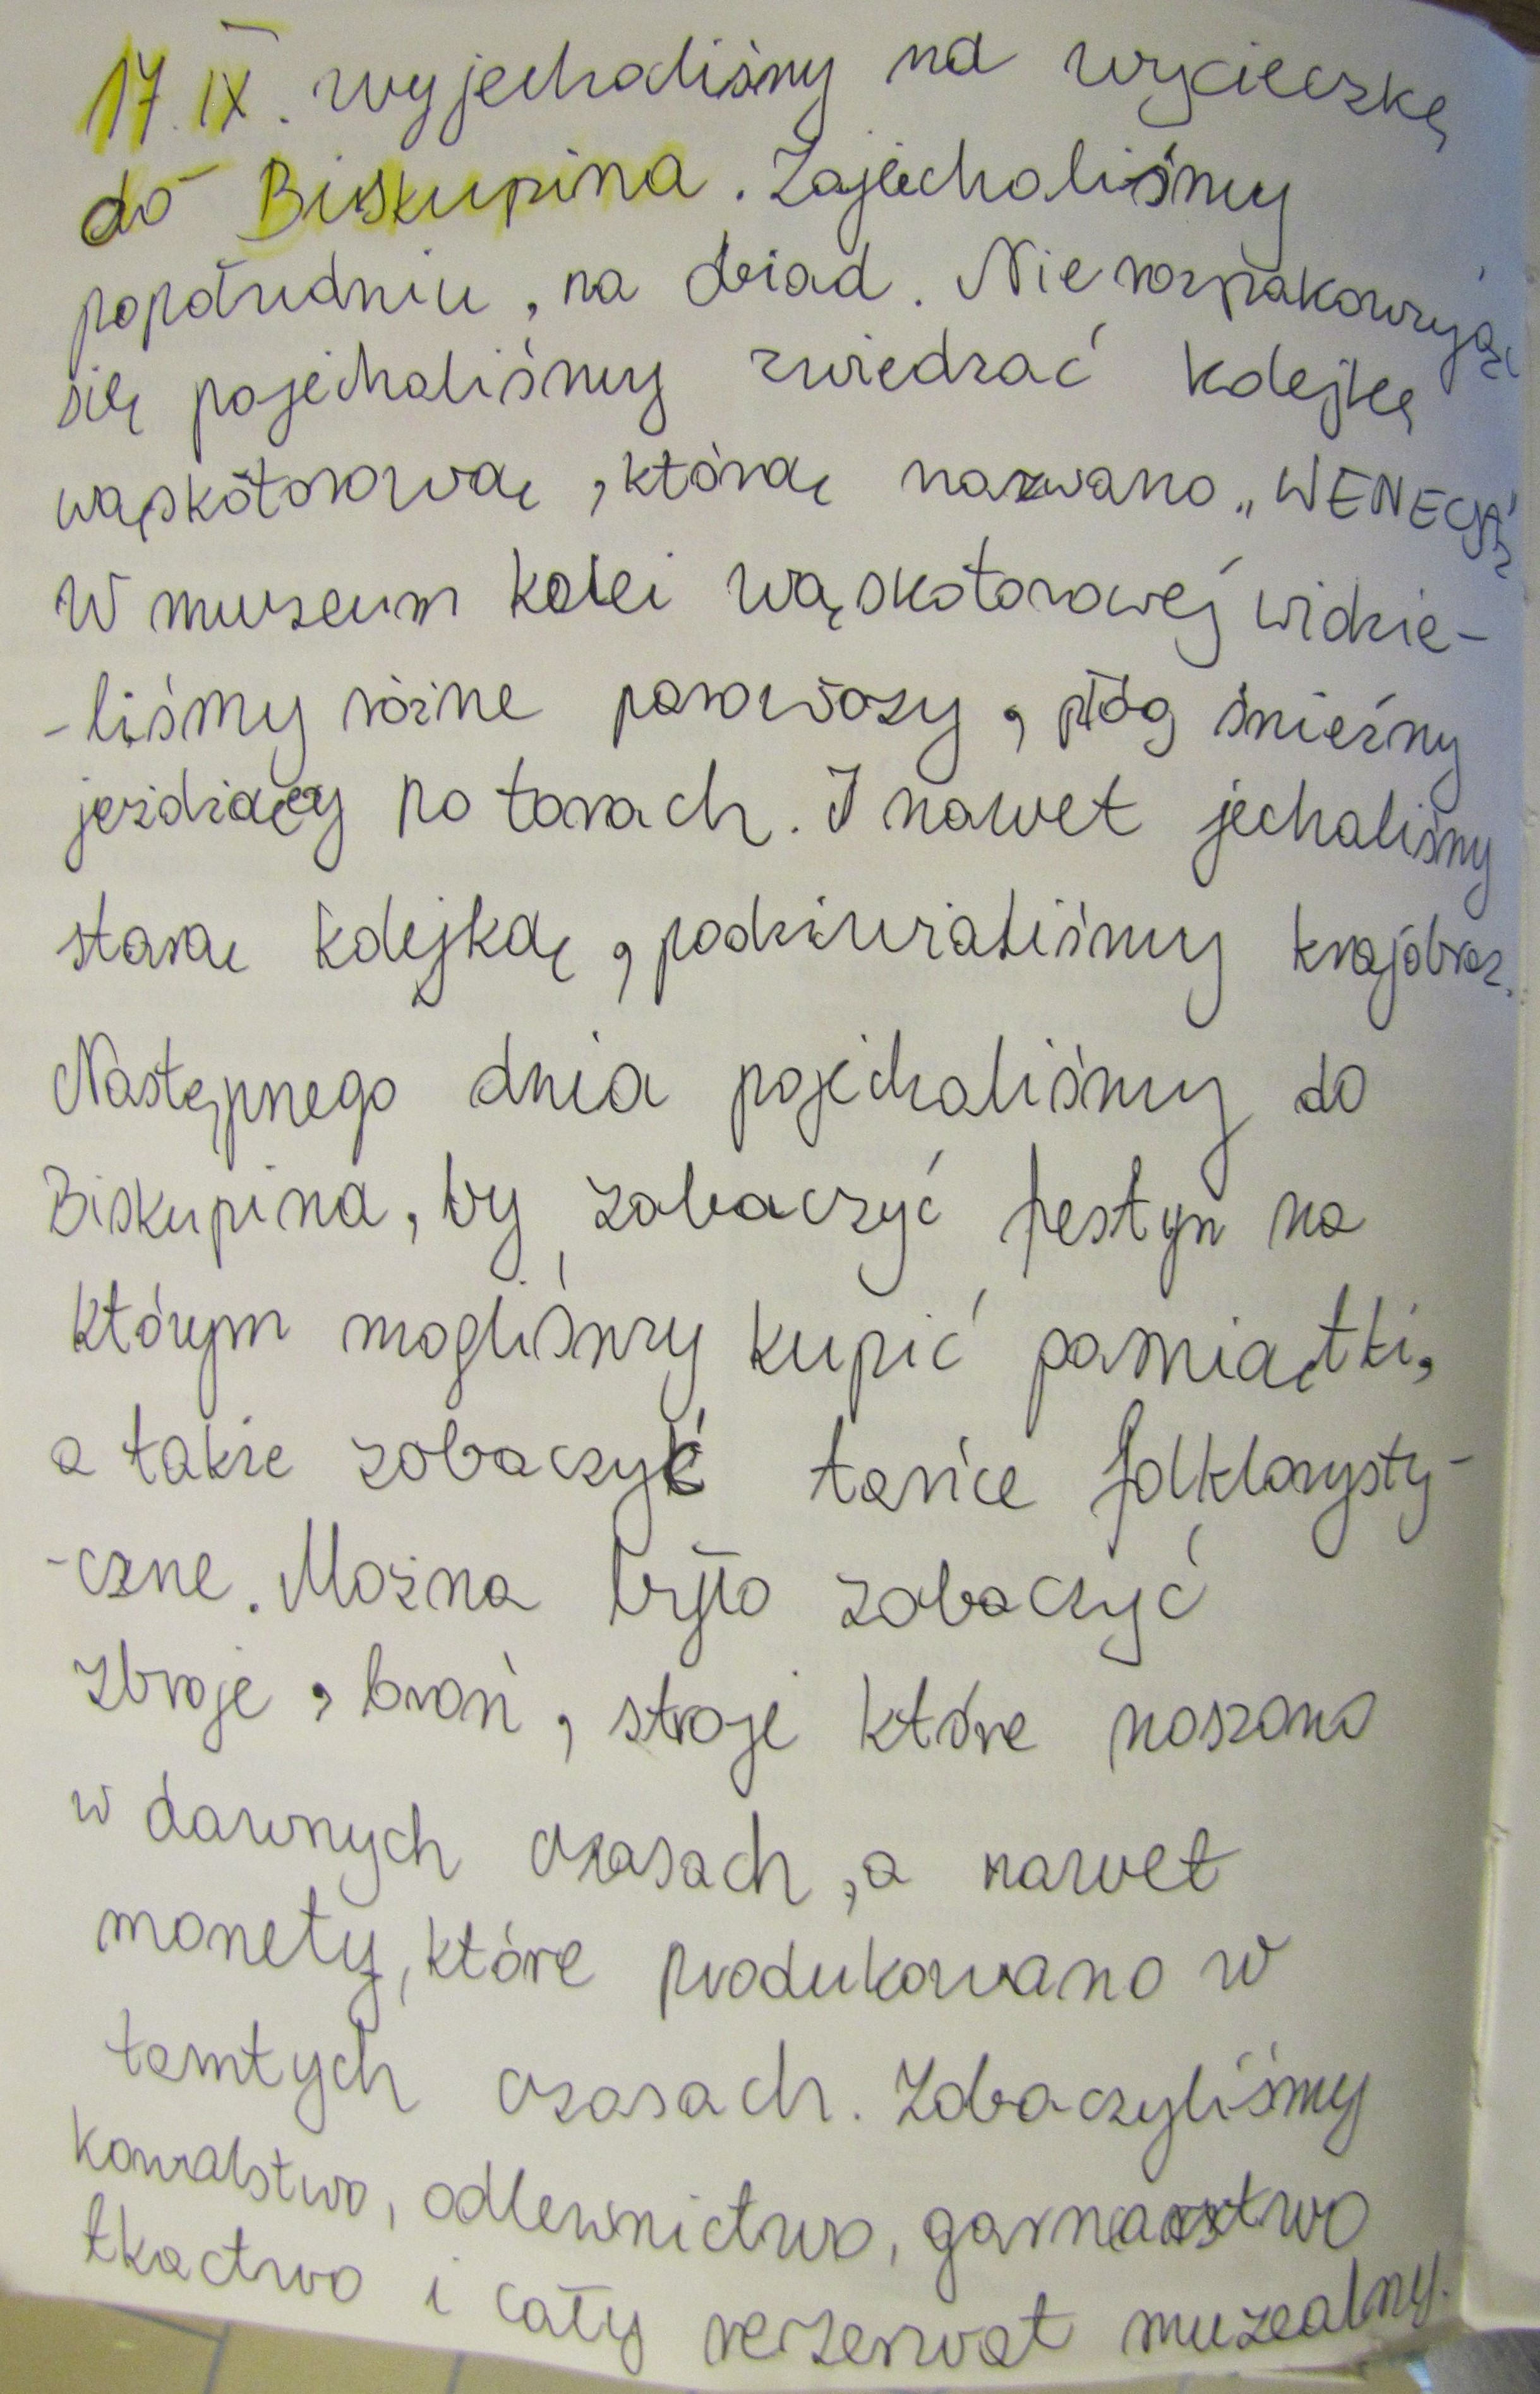 17. IX. wyjechaliśmy na wycieczkę
do Biskupina. Zajechaliśmy
popołudniu, na obiad. Nie rozpakowując
się pojechaliśmy zwiedzać kolejkę
wąskotorową, którą nazwano „WENECJĄ"
W muzeum kolei wąskotorowej widzie-
-liśmy różne parowozy, płóg śnieżny
jeżdżący po torach. I nawet jechaliśmy
starą kolejką, podziwialiśmy krajobraz.
Następnego dnia pojechaliśmy do
Biskupina, by zobaczyć festyn na
którym mogliśmy kupić pamiątki,
a także zobaczyć tańce folklorysty-
-czne. Można było zobaczyć
zbroje, broń, stroje które noszono
w dawnych czasach, a nawet
monety, które produkowano w
tamtych czasach. Zobaczyliśmy
kowalstwo, odlewnictwo, garncarstwo
tkactwo i cały rezerwat muzealny.